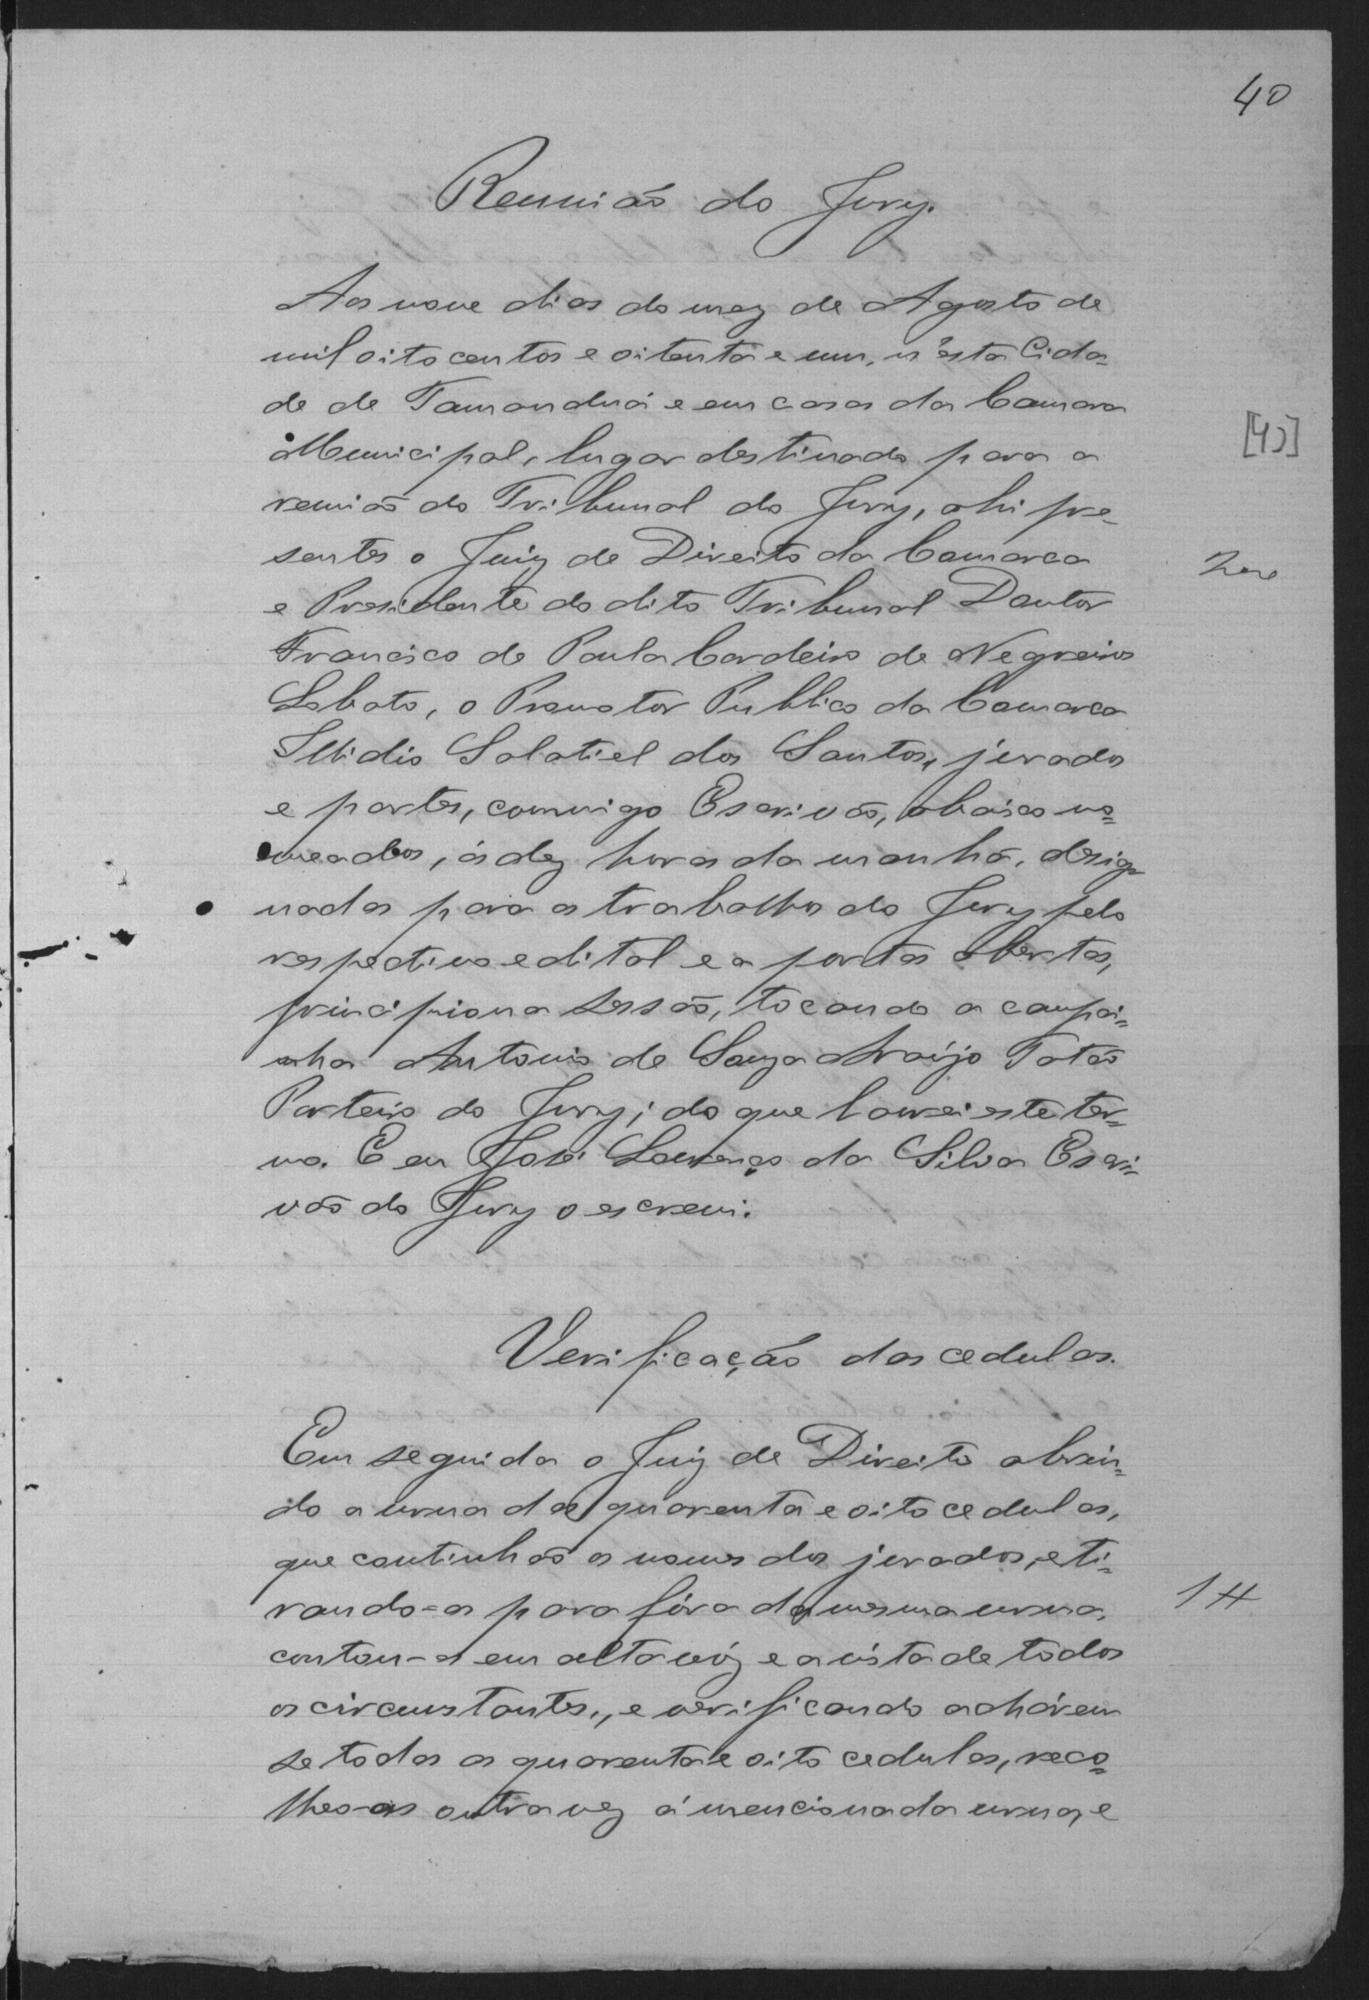 40
Reunião do Jury.
Aos nove dias do mez de Agosto de
mil oito centos e oitenta e um, n'esta Cida-
de de Tamanduá e em casa da Camara
Municipal, lugar destinado para a
reunião do Tribunal do Jury, ahi pre-
sentes o Juiz de Direito da Comarca
e Presidente do dito Tribunal Doutor
Francisco de Paula Cordeiro de Negreiros
Lobato, o Promotor Publico da Comarca
Salatiel dos Santos, jurados
e partes, commigo Escrivão, abaixo no=
meados, ás dez horas da manhã, desig-
nadas para os trabalhos do Jury pelo
respectivo edital e a portas abertas,
principiou a sessão, tocando a campai=
nha Antonio de Souza Araújo Totão
Porteiro do Jury; do que lavrei este ter-
mo. E eu José Lourenço da Silva Escri=
vão do Jury o escrevi.
[40]
Verificação das cedulas.
Em seguida o Juiz de Direito abrin=
do a urna das quarenta e oito cedulas,
que continhão os nomes dos jurados, e ti=
rando=as para fóra da mesma urna,
contou-as em alta vóz e a vista de todos
os circunstantes, e verificando acharem
se todas as quarenta e oito cedulas, reco=
lheo-as outra vez á mencionada urna, e